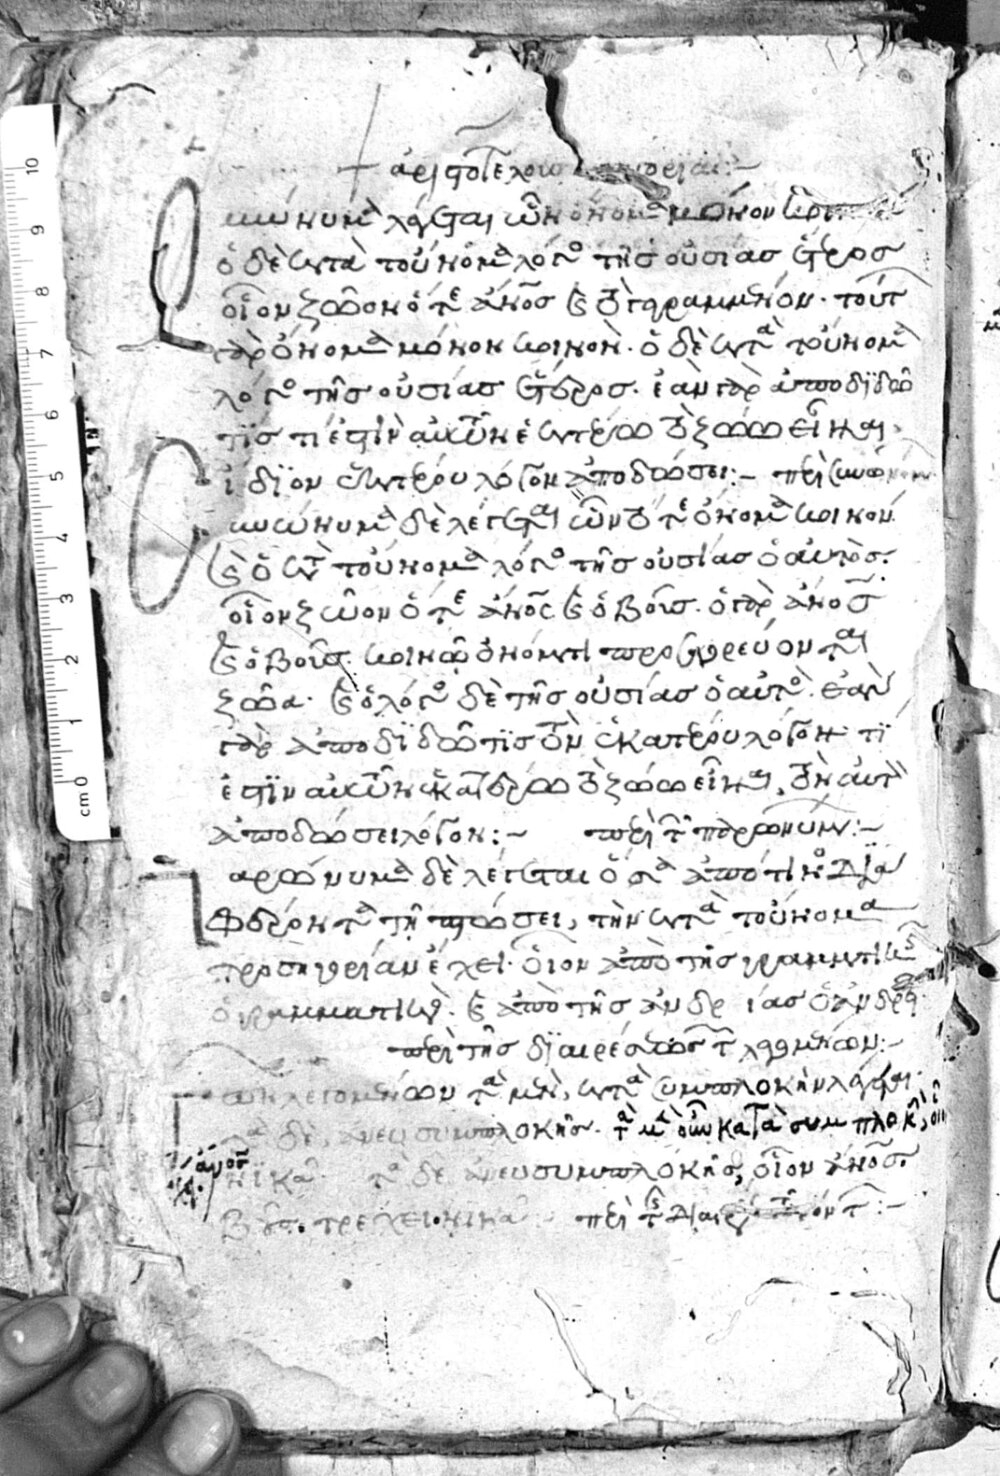 + ἀριστοτέλους κατηγορίαι:-
Ὁμώνυμα λέγεται ὧν ὄνομα μόνον κοινὸν
ὁ δὲ κατὰ τοὔνομα λόγος τῆς οὐσίας ἕτερος
οἷον ζῶον ὅ τε ἄνος καὶ τὸ γεγραμμένον. τούτ
γὰρ ὄνομα μόνον κοινὸν. ὁ δὲ κατὰ τοὔνομα
λόγος τῆς οὐσίας ἕτερος. ἐὰν γὰρ ἀποδιδῶ
τίς τί ἐστὶν αὐτῶν ἑκατέρω τὸ ζώω εἶναι.
ἴδιον ἑκατέρου λόγον ἀποδώσει:- περὶ συνωνύμων
Συνώνυμα δὲ λέγεται ὧν τό τε ὄνομα κοινόν.
καὶ ὁ κατὰ τοὔνομα λόγος τῆς οὐσίας ὁ αὐτὸς.
οἷον ζῶον ὅ τε ἄνος καὶ ὁ βοῦς. ὁ γὰρ ἄνος
καὶ ὁ βοῦς. κοινῶ ὀνόματι προσαγορεύονται
ζῶα. καὶ ὁ λόγος δὲ τῆς οὐσίας ὁ αὐτός. ἐὰν
γὰρ ἀποδιδῶ τίς τὸν ἑκατέρου λόγον. τί
ἐστὶν αὐτῶν ἑκατέρω τὸ ζώω εἶναι. τὸν αὐτὸν
ἀποδώσει λόγον:- περὶ τῶν παρωνύμων:-
Παρώνυμα δὲ λέγεται ὅσα ἀπό τινος δια
φέροντα τῆ πτώσει, τὴν κατὰ τοὔνομα
προσηγορίαν ἔχει. οἷον ἀπὸ τῆς γραμματικῆς
ὁ γραμματικός. καὶ ἀπὸ τῆς ἀνδρίας ὁ ἀνδρεῖος.
περὶ τῆς διαιρέσεως τῶν λεγομένων:-
Τῶν λεγομένων τὰ μὲν, κατὰ συμπλοκὴν λέγεται.
τὰ δὲ, ἄνευ συμπλοκῆς. τὰ μὲν οὖν κατὰ συμπλοκὴν, οἷον
ἄνος
νικᾶ. τὰ δὲ ἄνευ συμπλοκῆς, οἷον ἄνος.
βοῦς. τρέχει. νικᾶ:-